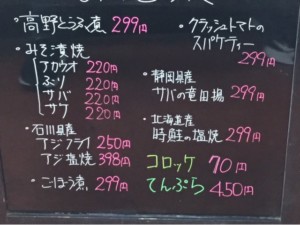 ・高野とうふ煮 299円
・みそ漬焼
アカウオ 220円
ぶり 220円
サバ 220円
サケ 220円
・石川県産
アジフライ 250円
アジ塩焼 398円
・ごぼう煮 299円
・クラッシュトマトの
スパゲティー
299円
・静岡県産
サバの竜田揚 299円
・北海道産
時鮭の塩焼 299円
コロッケ 70円
てんぷら 450円